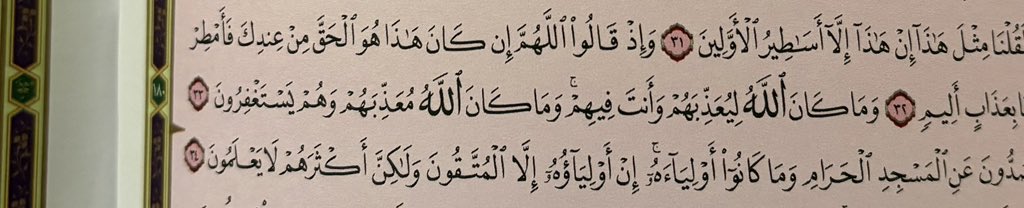 لَقُلْنَا مِثْلَ هَٰذَآ إِنْ هَٰذَآ إِلَّآ أَسَٰطِيرُ ٱلْأَوَّلِينَ ٣١ وَإِذْ قَالُوا۟ ٱللَّهُمَّ إِن كَانَ هَٰذَا هُوَ ٱلْحَقَّ مِنْ عِندِكَ فَأَمْطِرْ
بِعَذَابٍ أَلِيمٍ ٣٢ وَمَا كَانَ ٱللَّهُ لِيُعَذِّبَهُمْ وَأَنتَ فِيهِمْ ۚ وَمَا كَانَ ٱللَّهُ مُعَذِّبَهُمْ وَهُمْ يَسْتَغْفِرُونَ ٣٣
عَنِ ٱلْمَسْجِدِ ٱلْحَرَامِ وَمَا كَانُوٓا۟ أَوْلِيَآءَهُۥٓ ۚ إِنْ أَوْلِيَآؤُهُۥٓ إِلَّا ٱلْمُتَّقُونَ وَلَٰكِنَّ أَكْثَرَهُمْ لَا يَعْلَمُونَ ٣٤
١٨٠